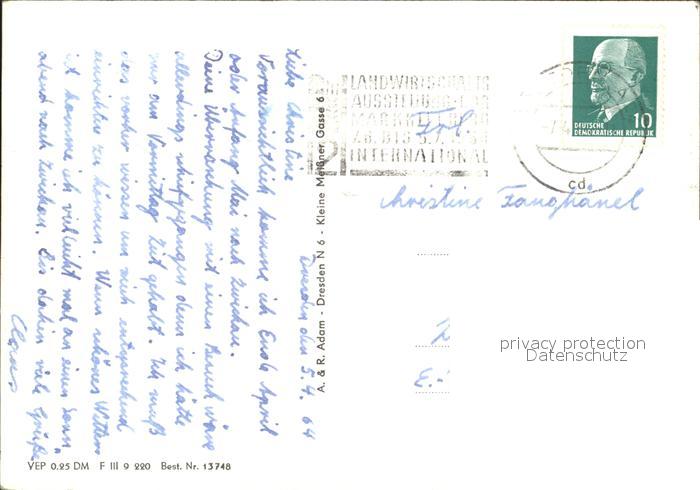 Dresden den 5.4.64
Liebe Christine
Voraussichtlich komme ich Ende April
oder Anfang Mai nach Zwickau.
Deine Überraschung mit einem Besuch wäre
allerdings schiefgegangen denn ich hätte
nur den Vormittag Zeit gehabt. Ich muß
das vorher wissen um mich entsprechend
einrichten zu können. Wenn schönes Wetter
ist komme ich vielleicht mal an einem Sonn-
abend nach Zwickau. Bis dahin viele Grüße
Claus
A. & R. Adam - Dresden N 6 - Kleine Meißner Gasse 6
VEP 0.25 DM F III 9 220 Best. Nr. 13748
LANDWIRTSCHAFTS
AUSSTELLUNG
MARKKLEEBERG
INTERNATIONAL
10
DEUTSCHE
DEMOKRATISCHE REPUBLIK
cd
Frl.
Christine Fanghänel
privacy protection
Datenschutz